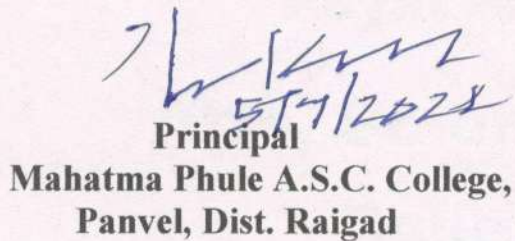 Principal
Mahatma Phule A.S.C. College,
Panvel, Dist. Raigad